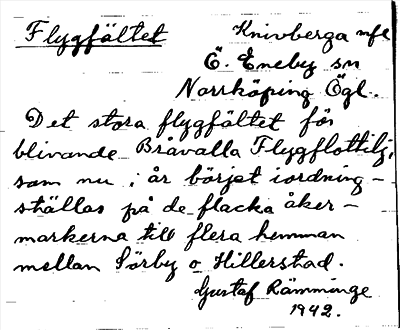 Flygfältet
Knivberga mfl
Ö. Eneby sn
Norrköping Ögl.
Det stora flygfältet för
blivande Bråvalla Flygflottilj,
som nu i år börjat iordning-
ställas på de flacka åker-
markerna till flera hemman
mellan Sörby o Hillerstad.
Gustaf Rämminge
1942.